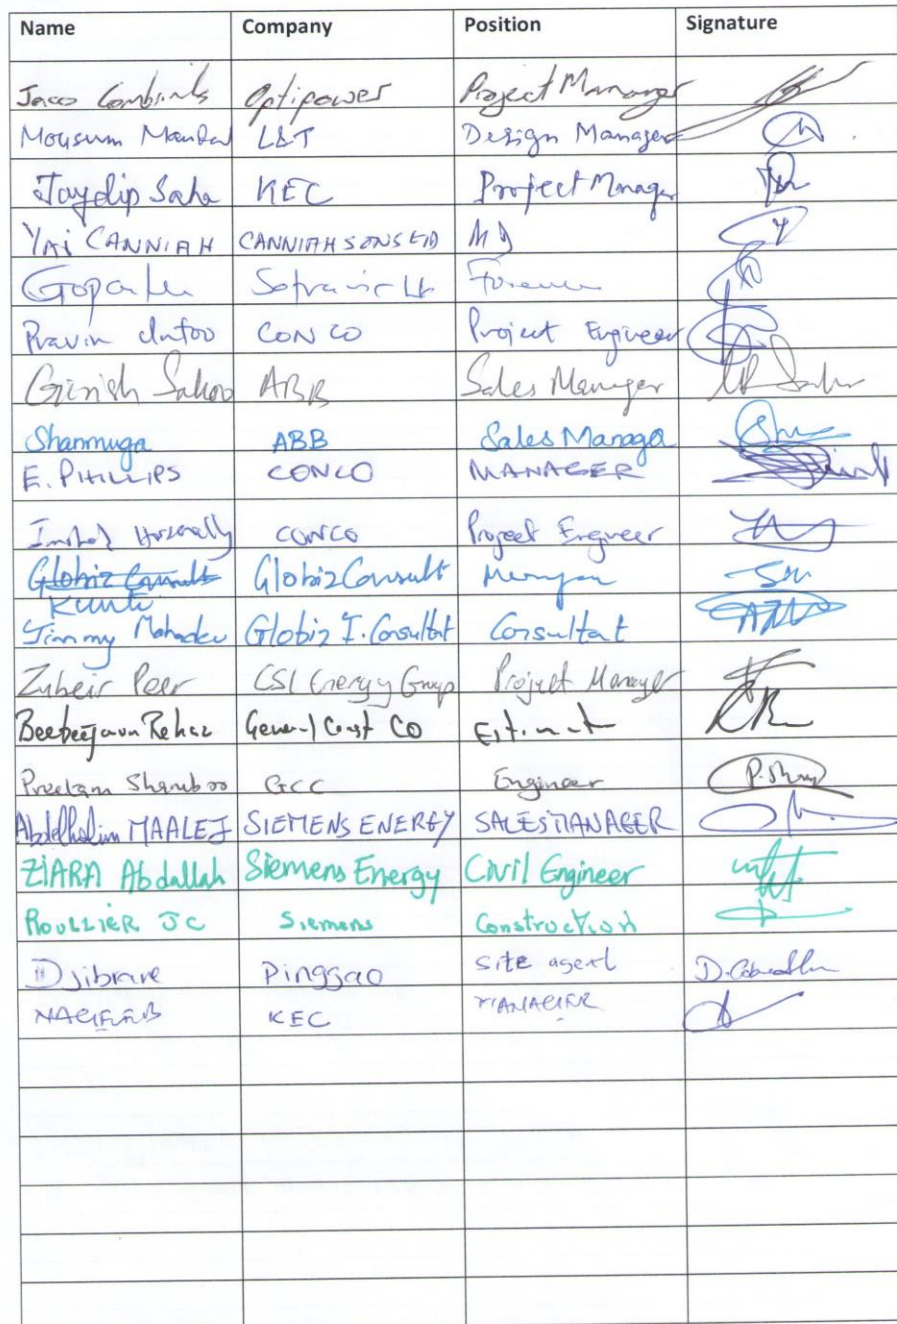 Name Company Position Signature
Jaco Combrinks Optipower Project Manager
Mousum Mandal L&T Design Manager
Joydip Saha KEC Project Manager
YAI CANNIAH CANNIAH SONS MD
Gopalu
Pravin CONCO Project Engineer
Girish Sahoo ABB Sales Manager
Shanmuga ABB Sales Manager
E. PHILLIPS CONCO MANAGER
CONCO Project Engineer
Globiz Consult Globiz Consult
Jimmy Mahadev Globiz I. Consultant Consultant
Zubeir Peer CSL Energy Group Project Manager
Beebeejaun Rehaz General Const Co
Preetam Shamboo GCC Engineer P. Sham
Abdelhalim MAALEJ SIEMENS ENERGY SALES MANAGER
ZIARA Abdallah Siemens Energy Civil Engineer
ROULLIER JC Siemens Construction
Djibrane Pinggao site agent
KEC MANAGER